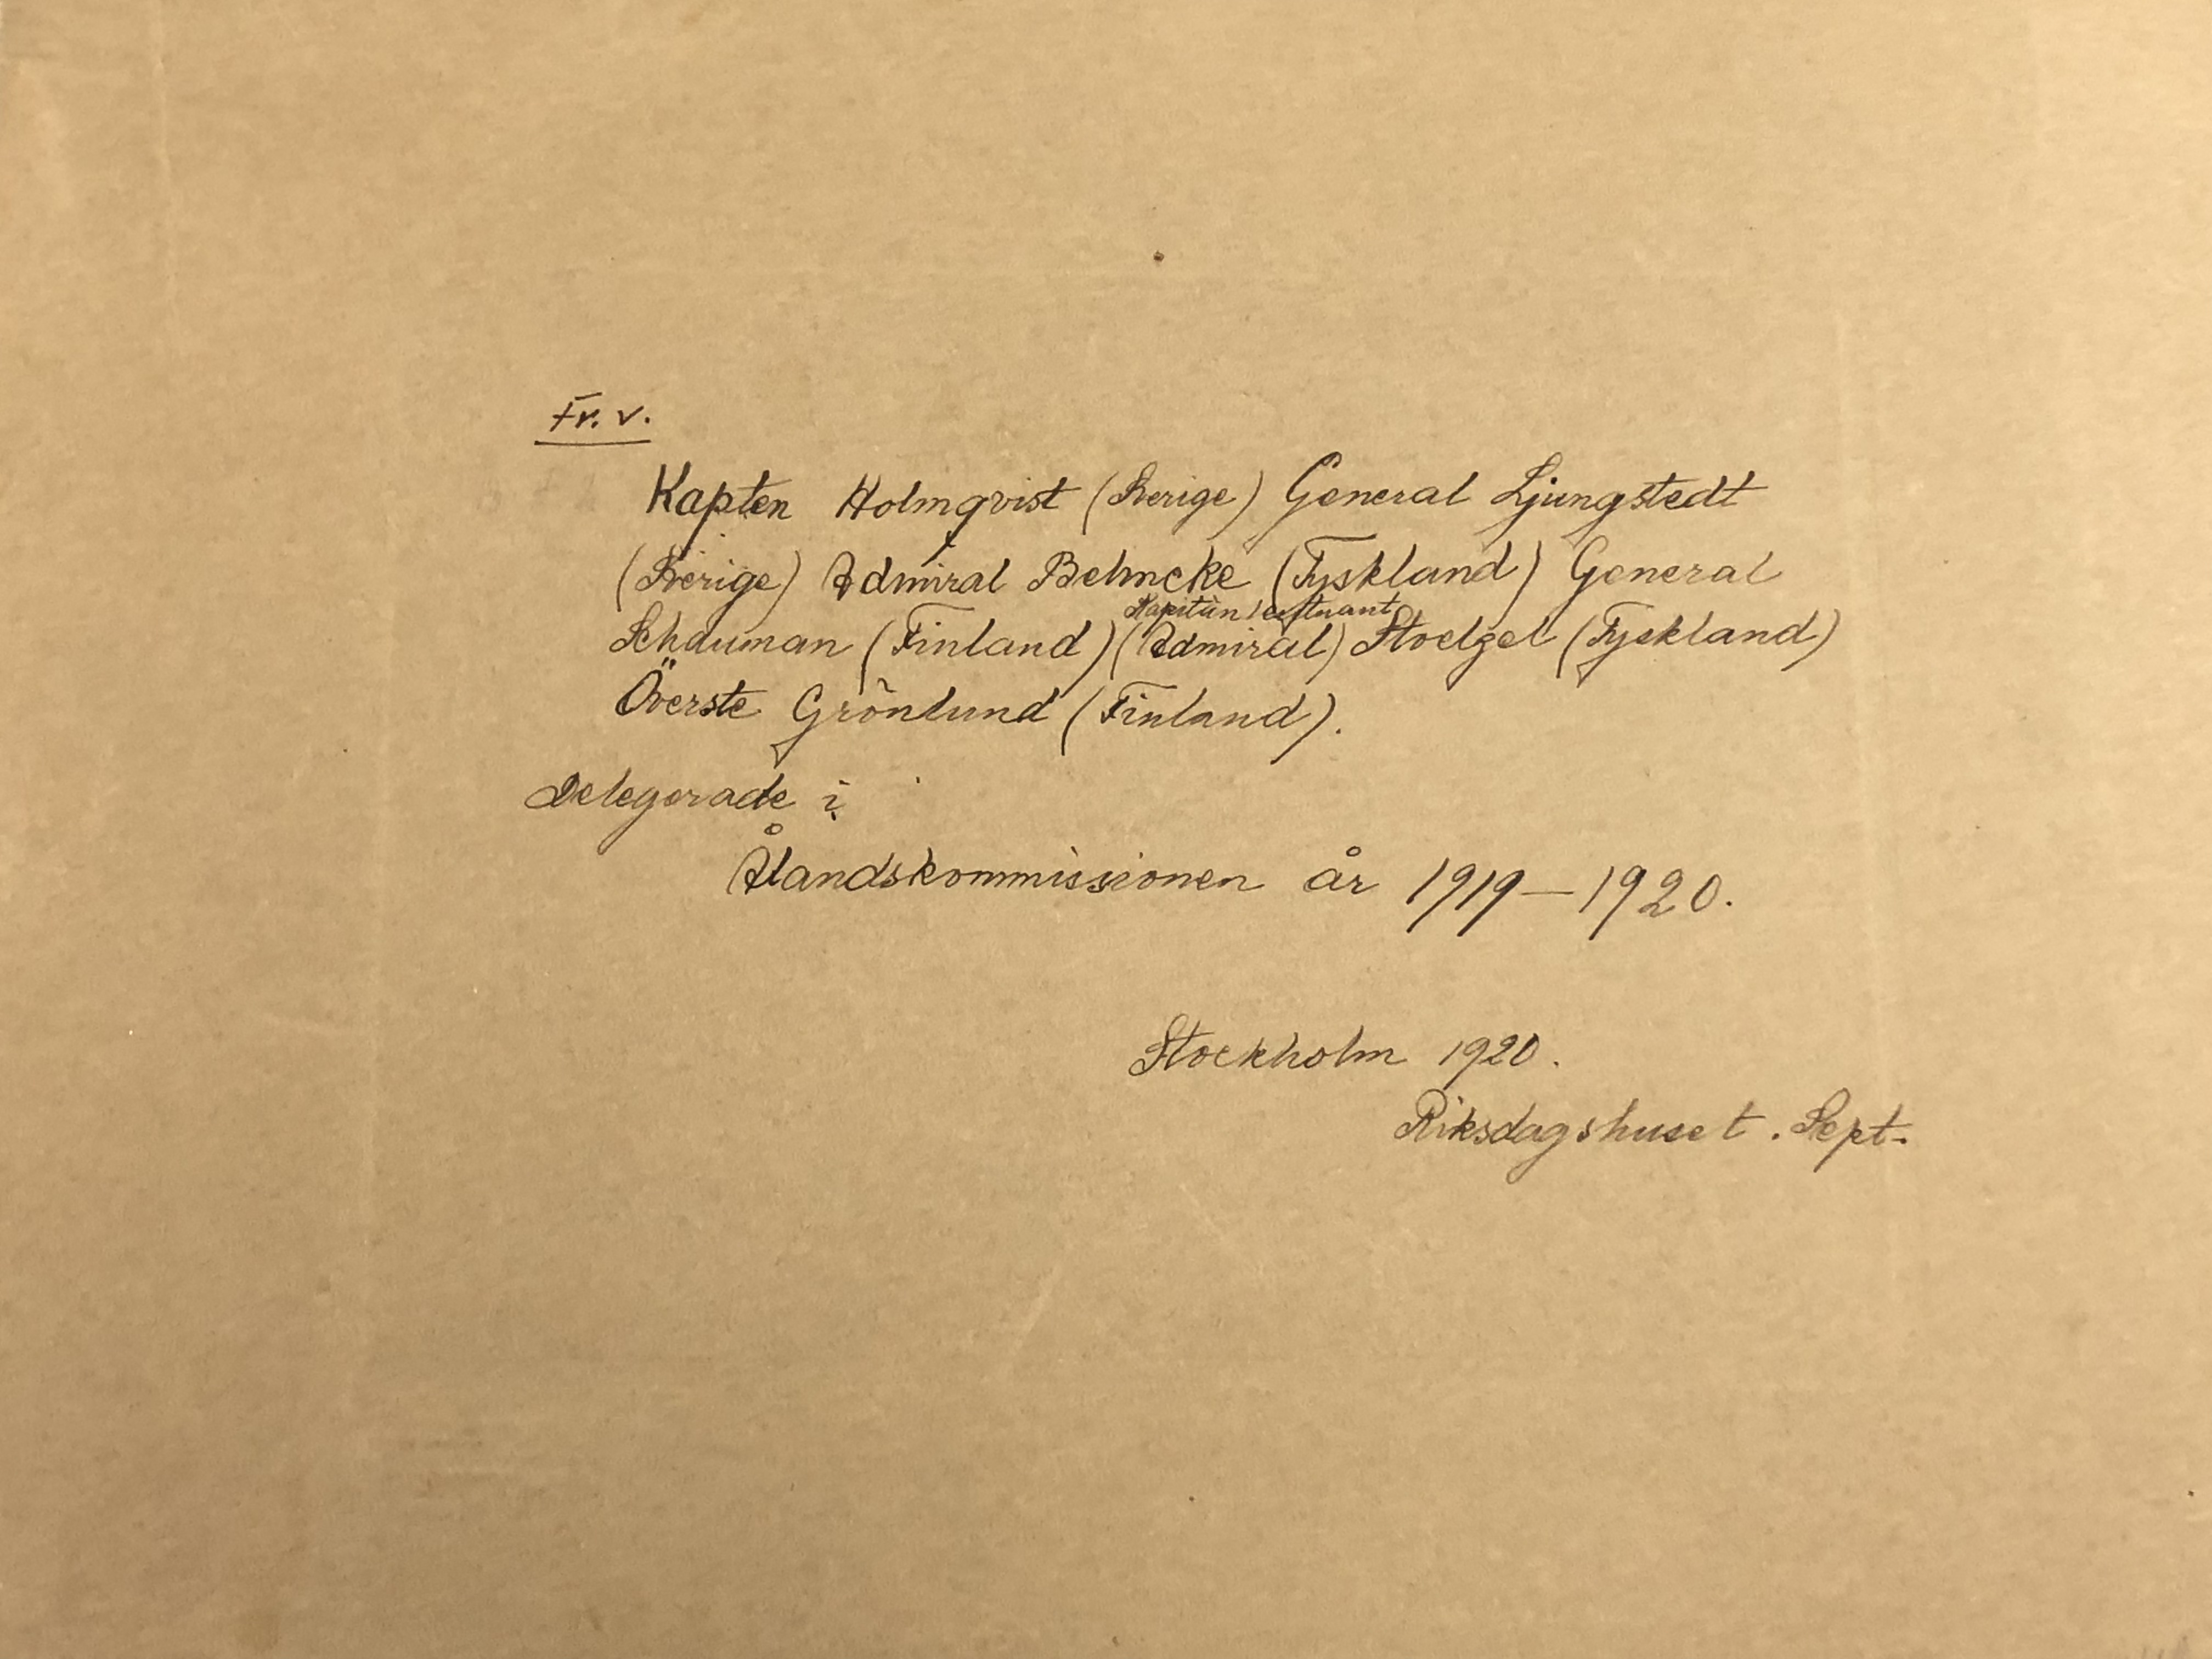 Fr. v.
Kapten Holmqvist (Sverige) General Ljungstedt
(Sverige) Admiral Behncke (Tyskland) General
Kapitänleutnant
Schauman (Finland) (Admiral) Stoelzel (Tyskland)
Överste Grönlund (Finland).
Delegerade i
Ålandskommissionen år 1919—1920.
Stockholm 1920.
Riksdagshuset. Sept.